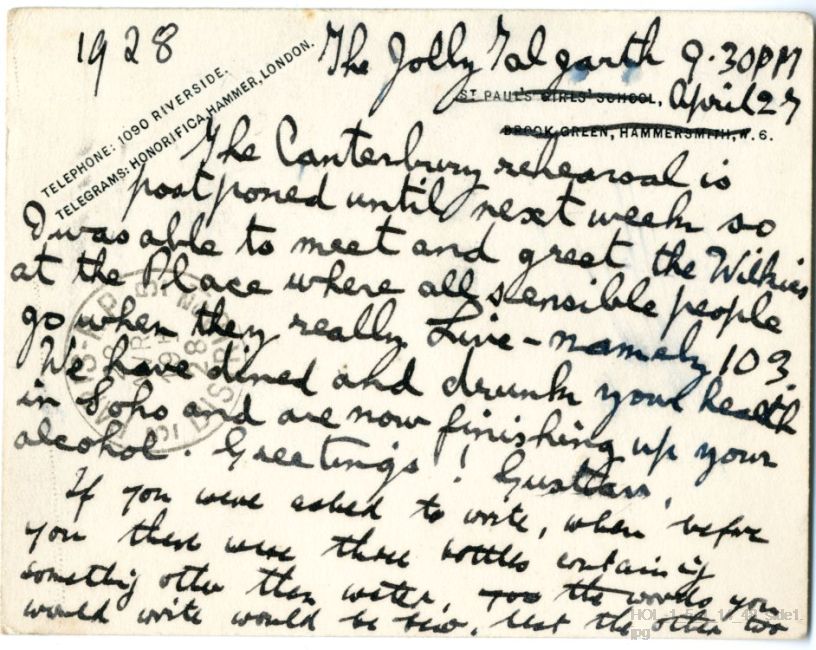 1928
The Jolly Talgarth 9.30PM
TELEPHONE: 1090 RIVERSIDE.
TELEGRAMS: HONORIFICA, HAMMER, LONDON.
ST PAUL'S GIRLS' SCHOOL, April 27
BROOK GREEN, HAMMERSMITH, W. 6.
The Canterbury rehearsal is
postponed until next week so
I was able to meet and greet the Wilkies
at the Place where all sensible people
go when they really Live - namely 103.
We have dined and drunk your health
in Soho and are now finishing up your
alcohol. Greetings! Gustav.
If you were asked to write, when before
you there were three bottles containing
something other than water, the words you
would write would be few. Let the other two
HOL_1_5_ side1.
jpg